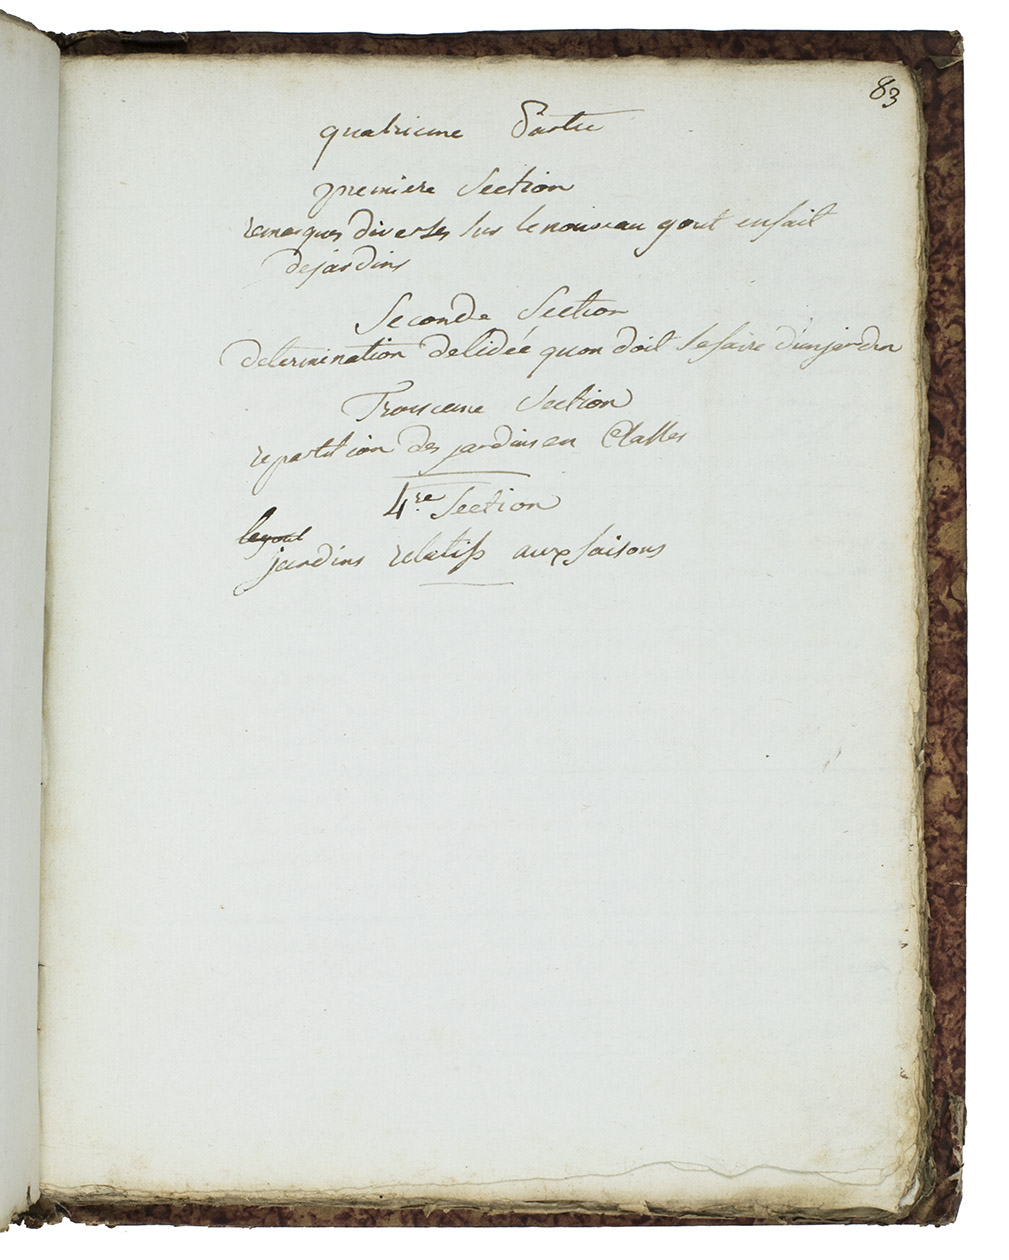 83
quatrieme Partie
premiere Section
remarques diverses sur le nouveau gout en fait
de jardins
Seconde Section
determination de lidée quon doit se faire d'un jardin
Troisieme Section
repartition des jardins en Classes
4re Section
le gout
jardins relatifs aux saisons